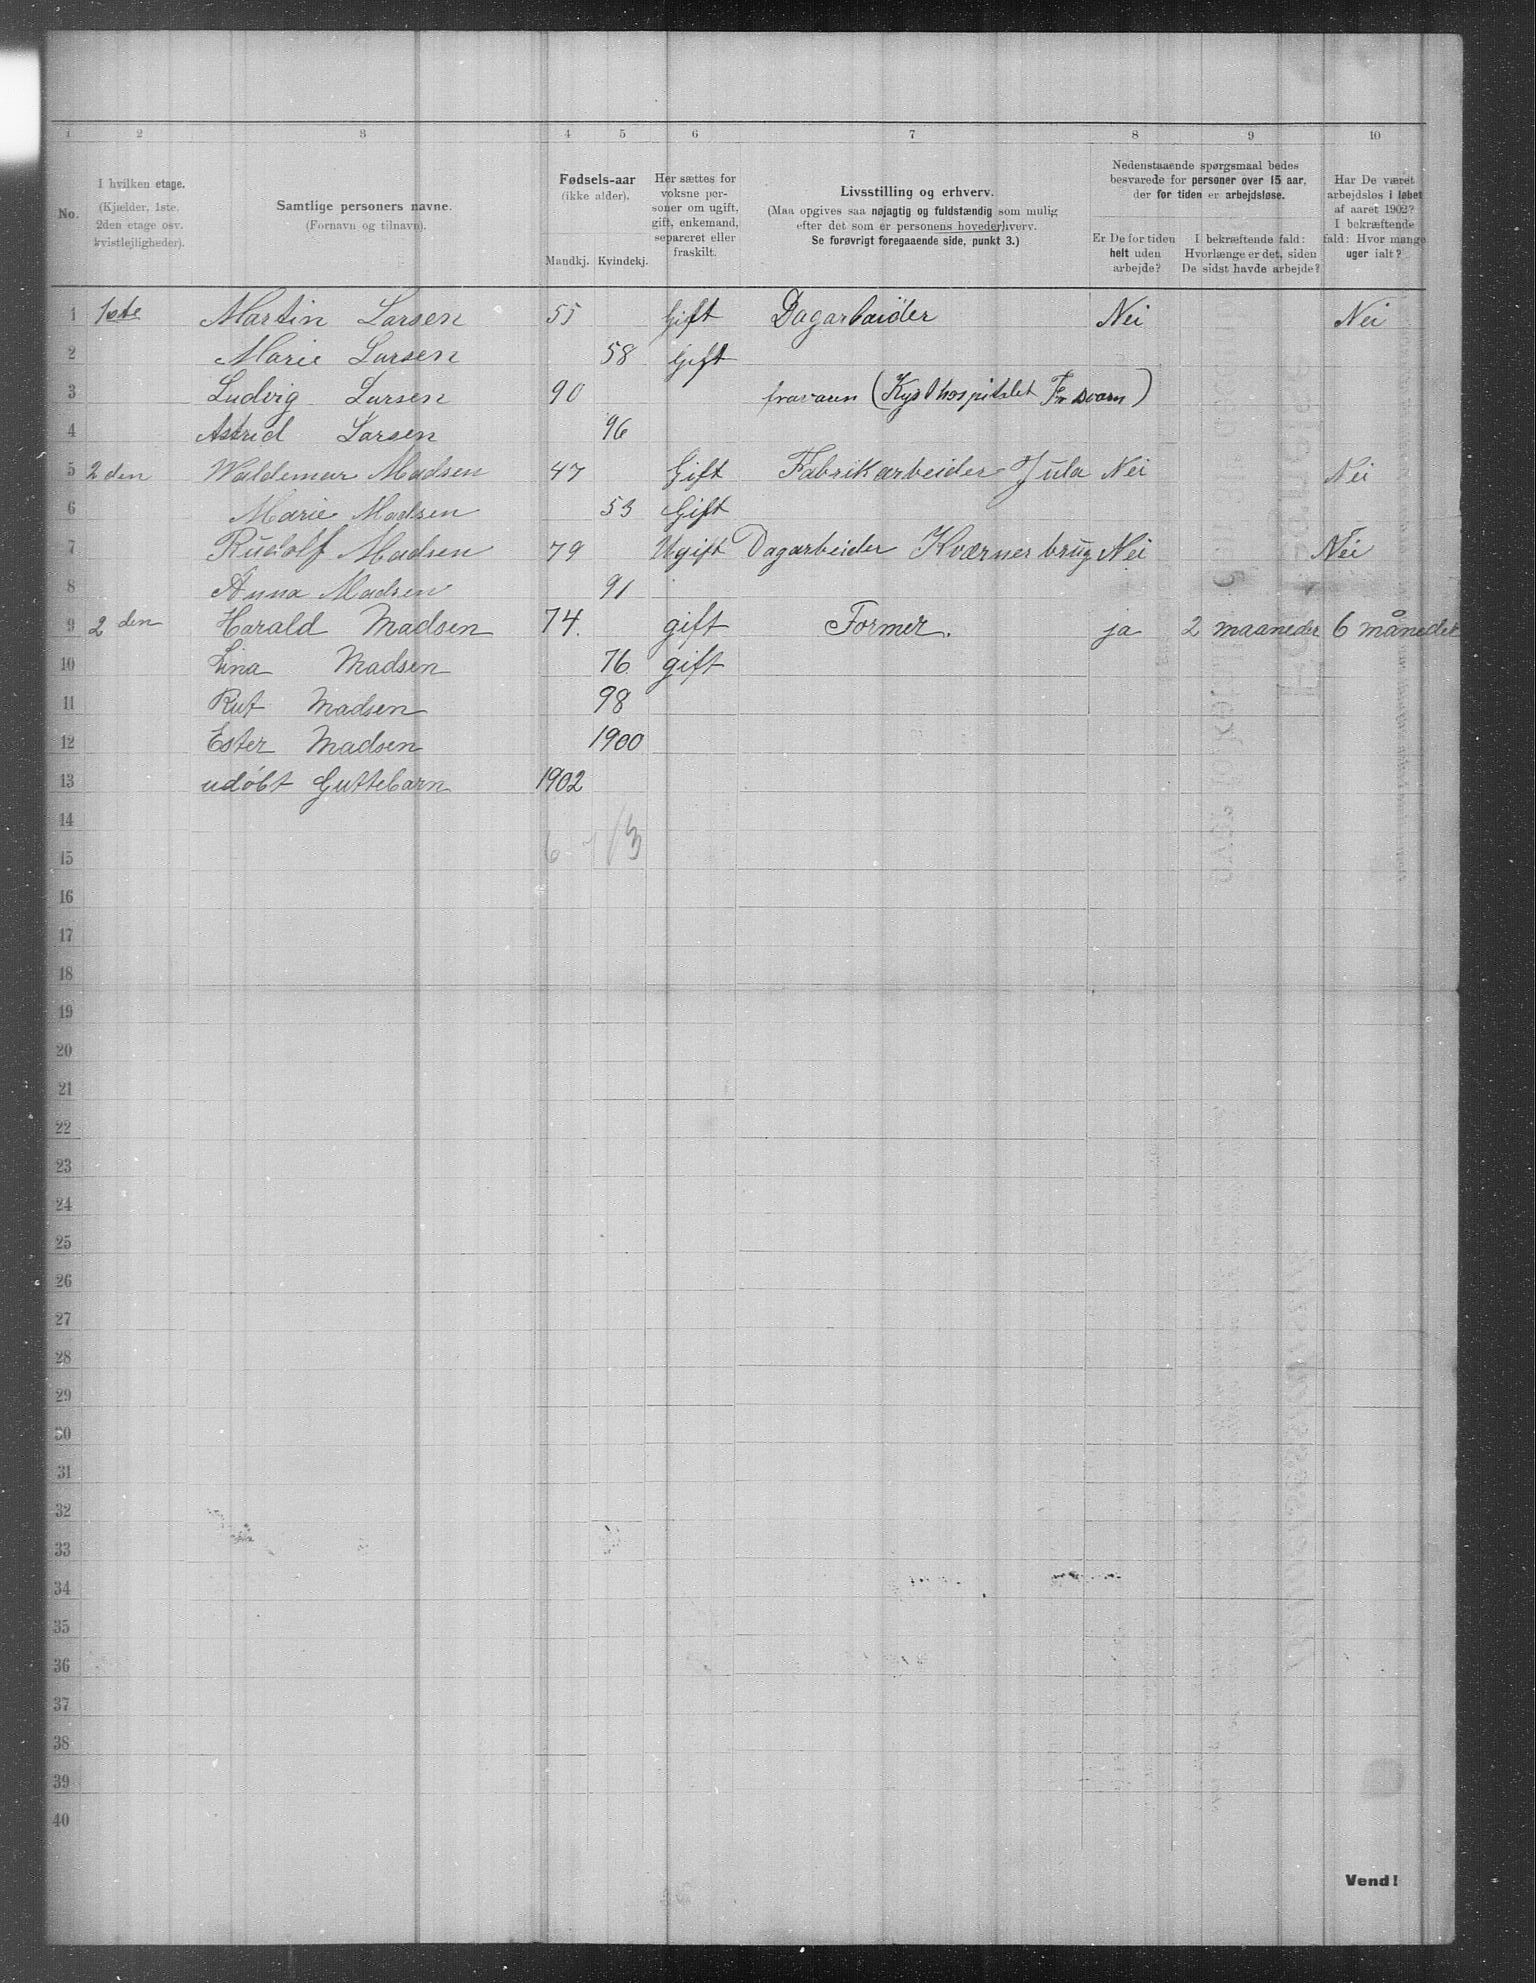 1 2 3 4 5 6 7 8 9 10
No.
I hvilken etage.
(Kjælder, 1ste.
2den etage osv.
kvistlejligheder).
Samtlige personers navne.
(Fornavn og tilnavn).
Fødsels-aar
(ikke alder).
Mandkj. Kvindekj.
Her sættes for
voksne per-
soner om ugift,
gift, enkemand,
separeret eller
fraskilt.
Livsstilling og erhverv.
(Maa opgives saa nøjagtig og fuldstændig som mulig
efter det som er personens hovederhverv.
Se forøvrigt foregaaende side, punkt 3.)
Nedenstaaende spørgsmaal bedes
besvarede for personer over 15 aar,
der for tiden er arbejdsløse.
Er De for tiden
helt uden
arbejde?
I bekræftende fald:
Hvorlænge er det, siden
De sidst havde arbejde?
Har De været
arbejdsløs i løbet
af aaret 1902?
I bekræftende
fald: Hvor mange
uger ialt?
1 1ste Martin Larsen 55 Gift Dagarbeider Nei Nei
2 Marie Larsen 58 Gift
3 Ludvig Larsen 90 (Kysthospitalet )
4 Astrid Larsen 96
5 2den Waldemar Madsen 47 Gift Fabrikarbeider Jula Nei Nei
6 Marie Madsen 53 Gift
7 Rudolf Madsen 79 Ugift Dagarbeider Kværner brug Nei Nei
8 Anna Madsen 91
9 2den Harald Madsen 74. gift Former. ja 2 maaneder 6 måneder
10 Lina Madsen 76 gift
11 Rut Madsen 98
12 Ester Madsen 1900
13 udøbt Guttebarn 1902
14
15
16
17
18
19
20
21
22
23
24
25
26
27
28
29
30
31
32
33
34
35
36
37
38
39
40
Vend!